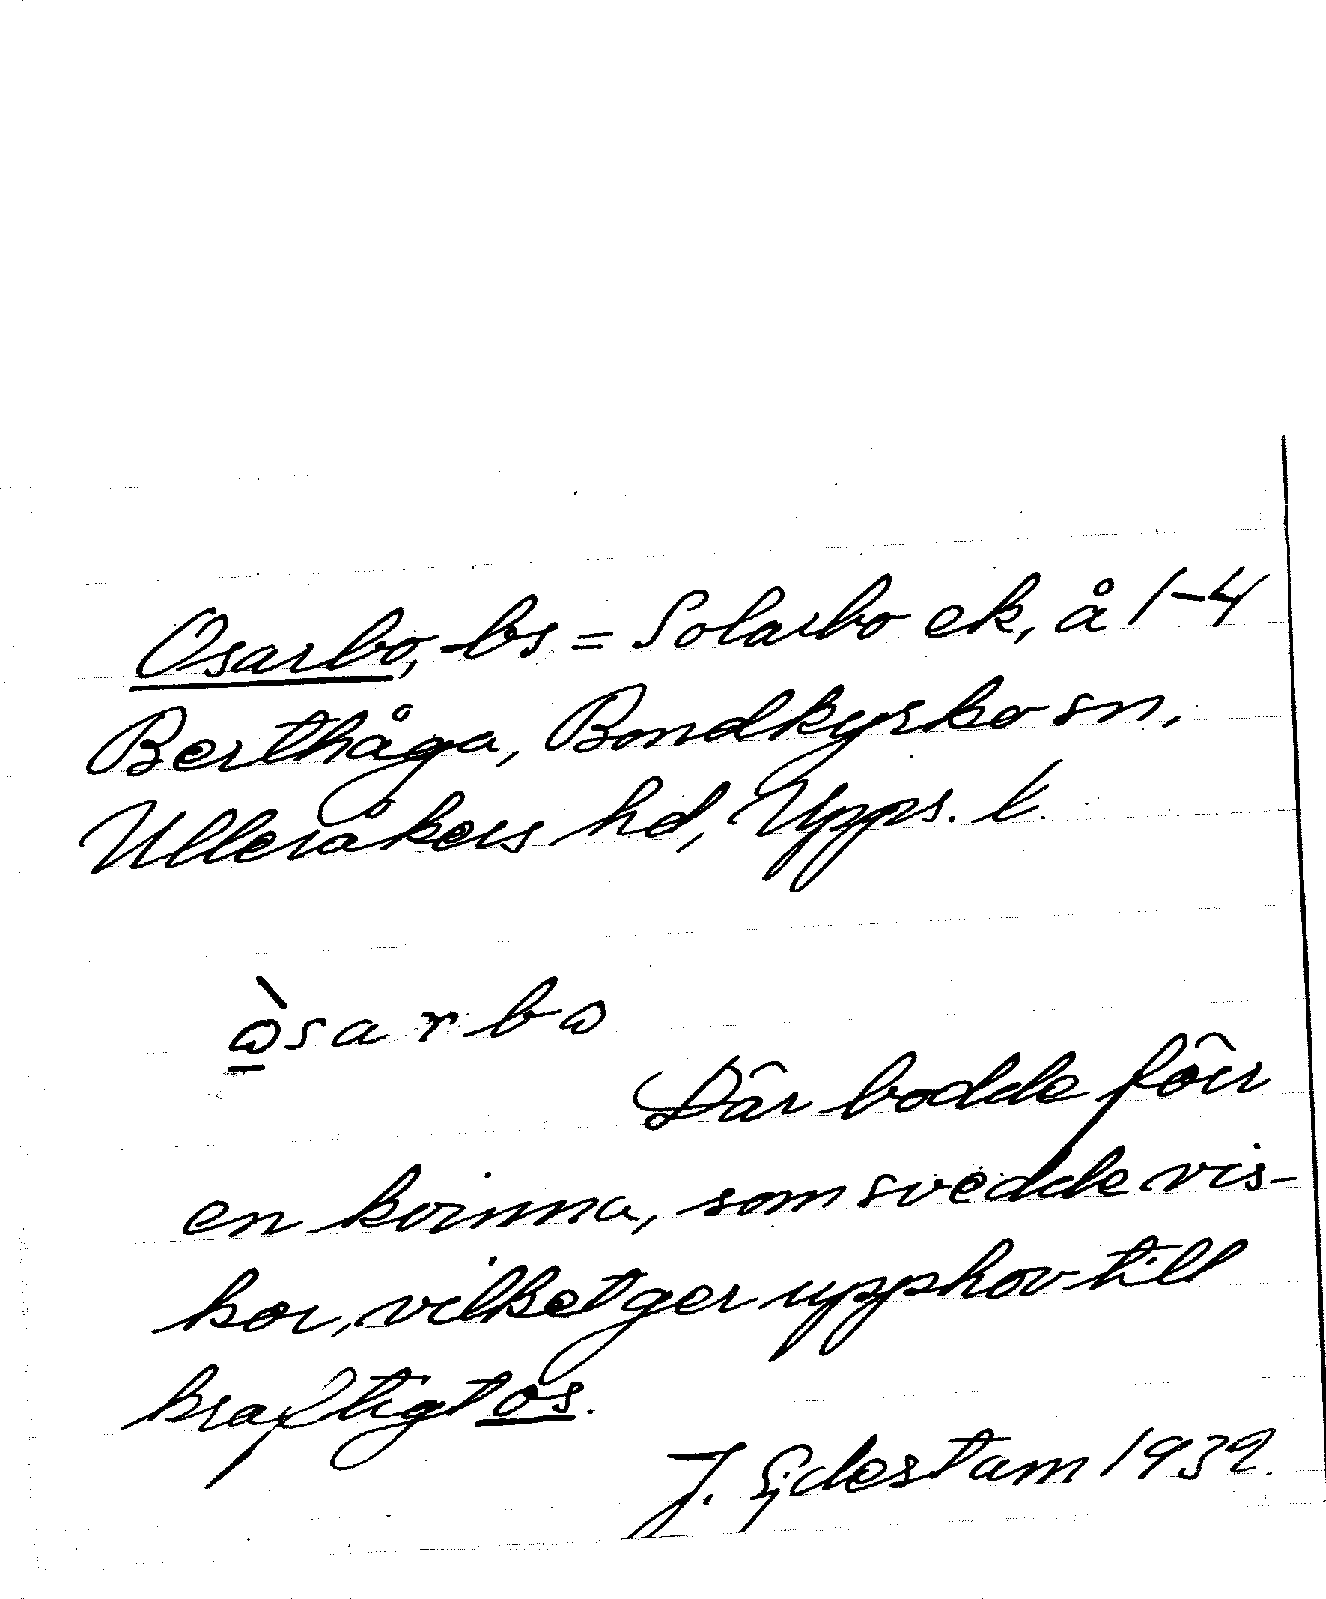 Osarbo, -bs = Solarbo ek, å 1-4
Berthåga, Bondkyrko sn,
Ulleråkers hd, Upps. l.
ὼsarbω
Där bodde förr
en kvinna, som svedde vis-
kor, vilket ger upphov till
kraftigt os.
J. Sjdestam 1932.